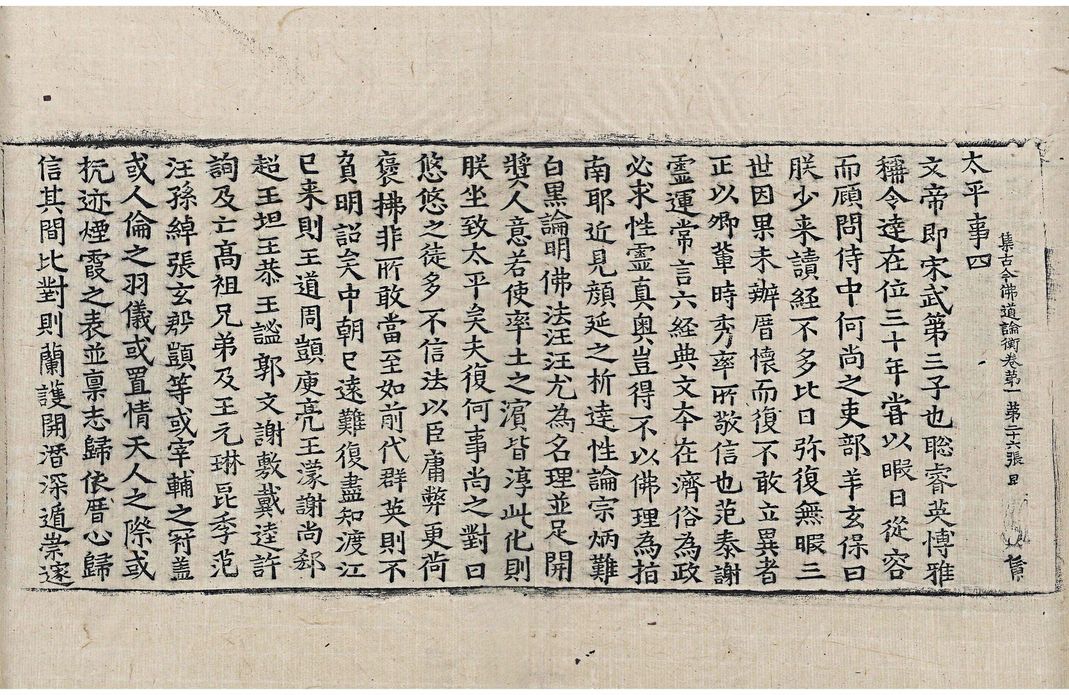 集古今佛道論衡卷第一 第二十六張
太平事四
文帝即宋武第三子也聡睿英愽雅
稱令達在位三十年嘗以暇日從容
而顧問侍中何尚之吏部羊玄保曰
朕少来讀経不多比日弥復無暇三
世因果未辦厝懷而復不敢立異者
正以卿輩時秀率所敬信也范泰謝
靈運常言六経典文夲在濟俗為政
必求性靈真奥豈得不以佛理為指
南耶近見顔延之析達性論宗炳難
白黒論明佛法汪汪尤為名理並足開
奬人意若使率土之濵皆淳此化則
朕坐致太平矣夫復何事尚之對曰
悠悠之徒多不信法以臣庸弊更荷
襃拂非所敢當至如前代群英則不
負明詔矣中朝已遠難復盡知渡江
已来則王道周顗庾亮王濛謝尚郄
超王坦王恭王謐郭文謝敷戴逵許
詢及亡髙祖兄弟及王元琳昆季范
汪孫綽張玄郄顗等或宰輔之冠盖
或人倫之羽儀或置情天人之際或
抗迹煙霞之表並禀志歸依厝心歸
信其間比對則蘭護開潜深遁崇邃